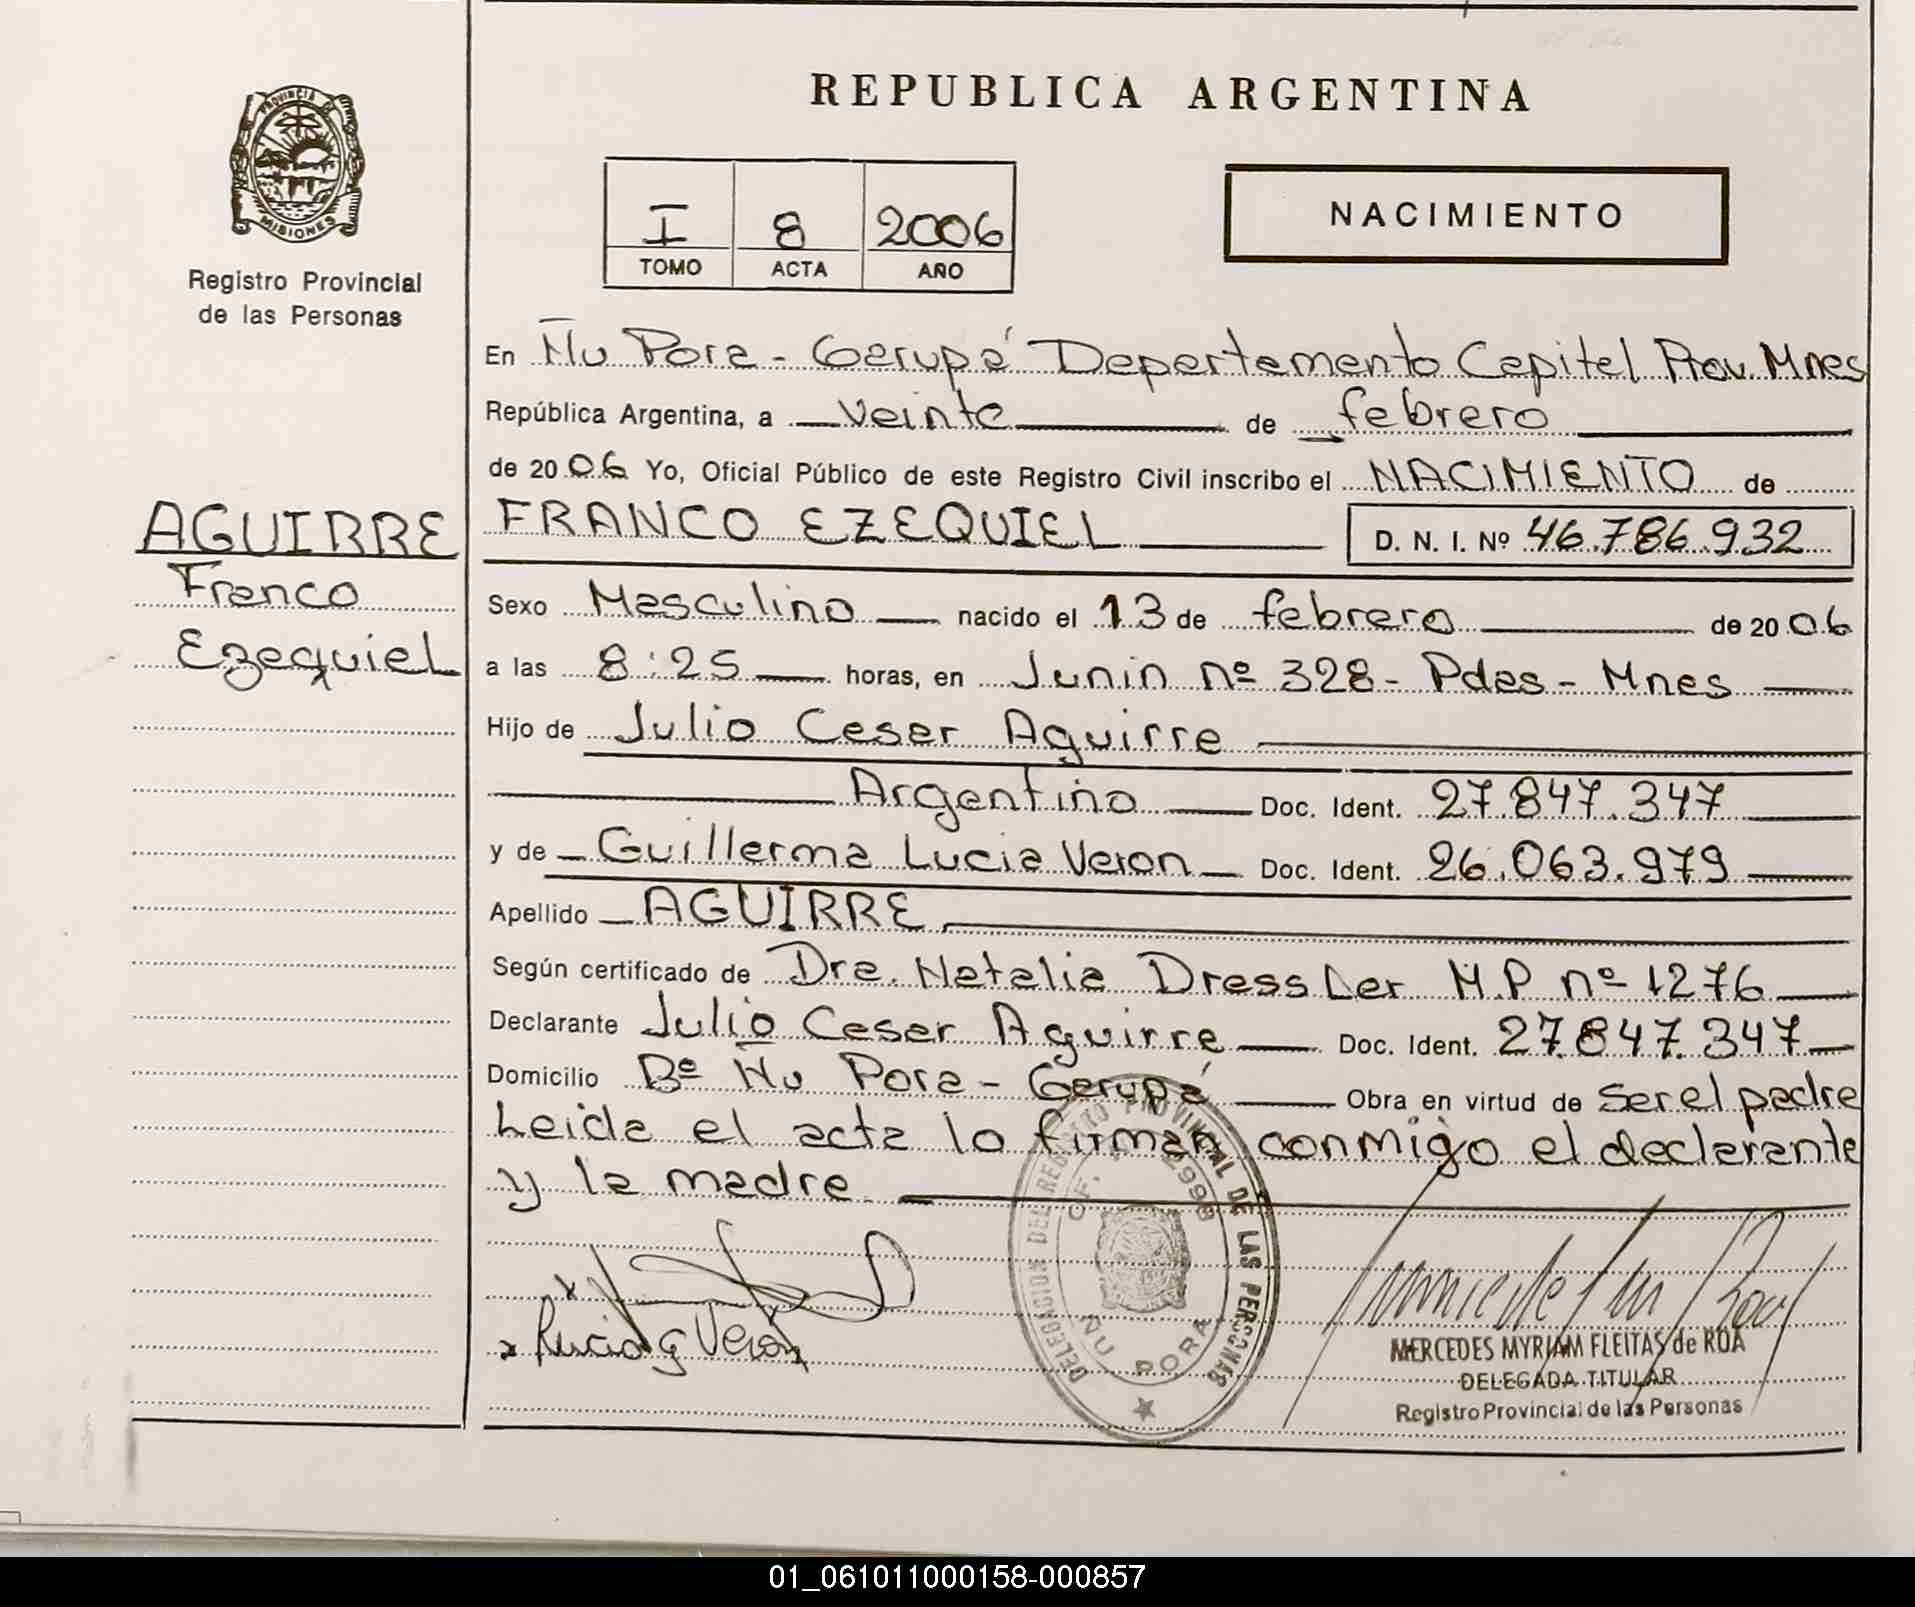 REPUBLICA ARGENTINA
PROVINCIA DE
MISIONES
Registro Provincial
de las Personas
I 8 2006
TOMO ACTA AÑO
NACIMIENTO
En Ñu Pora - Garupá Departamento Capital Prov. Mnes
República Argentina, a veinte de febrero
de 2006 Yo, Oficial Público de este Registro Civil inscribo el NACIMIENTO de
AGUIRRE
Franco
Ezequiel
FRANCO EZEQUIEL D. N. I. Nº 46.786.932
Sexo Masculino nacido el 13 de febrero de 2006
a las 8:25 horas, en Junin nº 328 - Pdas - Mnes
Hijo de Julio Cesar Aguirre
Argentino Doc. Ident. 27.847.347
y de Guillerma Lucia Veron Doc. Ident. 26.063.979
Apellido AGUIRRE
Según certificado de Dra. Natalia Dressler M.P nº 1276
Declarante Julio Cesar Aguirre Doc. Ident. 27.847.347
Domicilio Bº Ñu Pora - Garupá Obra en virtud de ser el padre
Leida el acta lo firman conmigo el declarante
y la madre
x
x Lucia G Veron
DELEGACION DEL REGISTRO PROVINCIAL DE LAS PERSONAS
OF. 2998
ÑU PORA
MERCEDES MYRIAM FLEITAS de ROA
DELEGADA TITULAR
Registro Provincial de las Personas
01_061011000158-000857